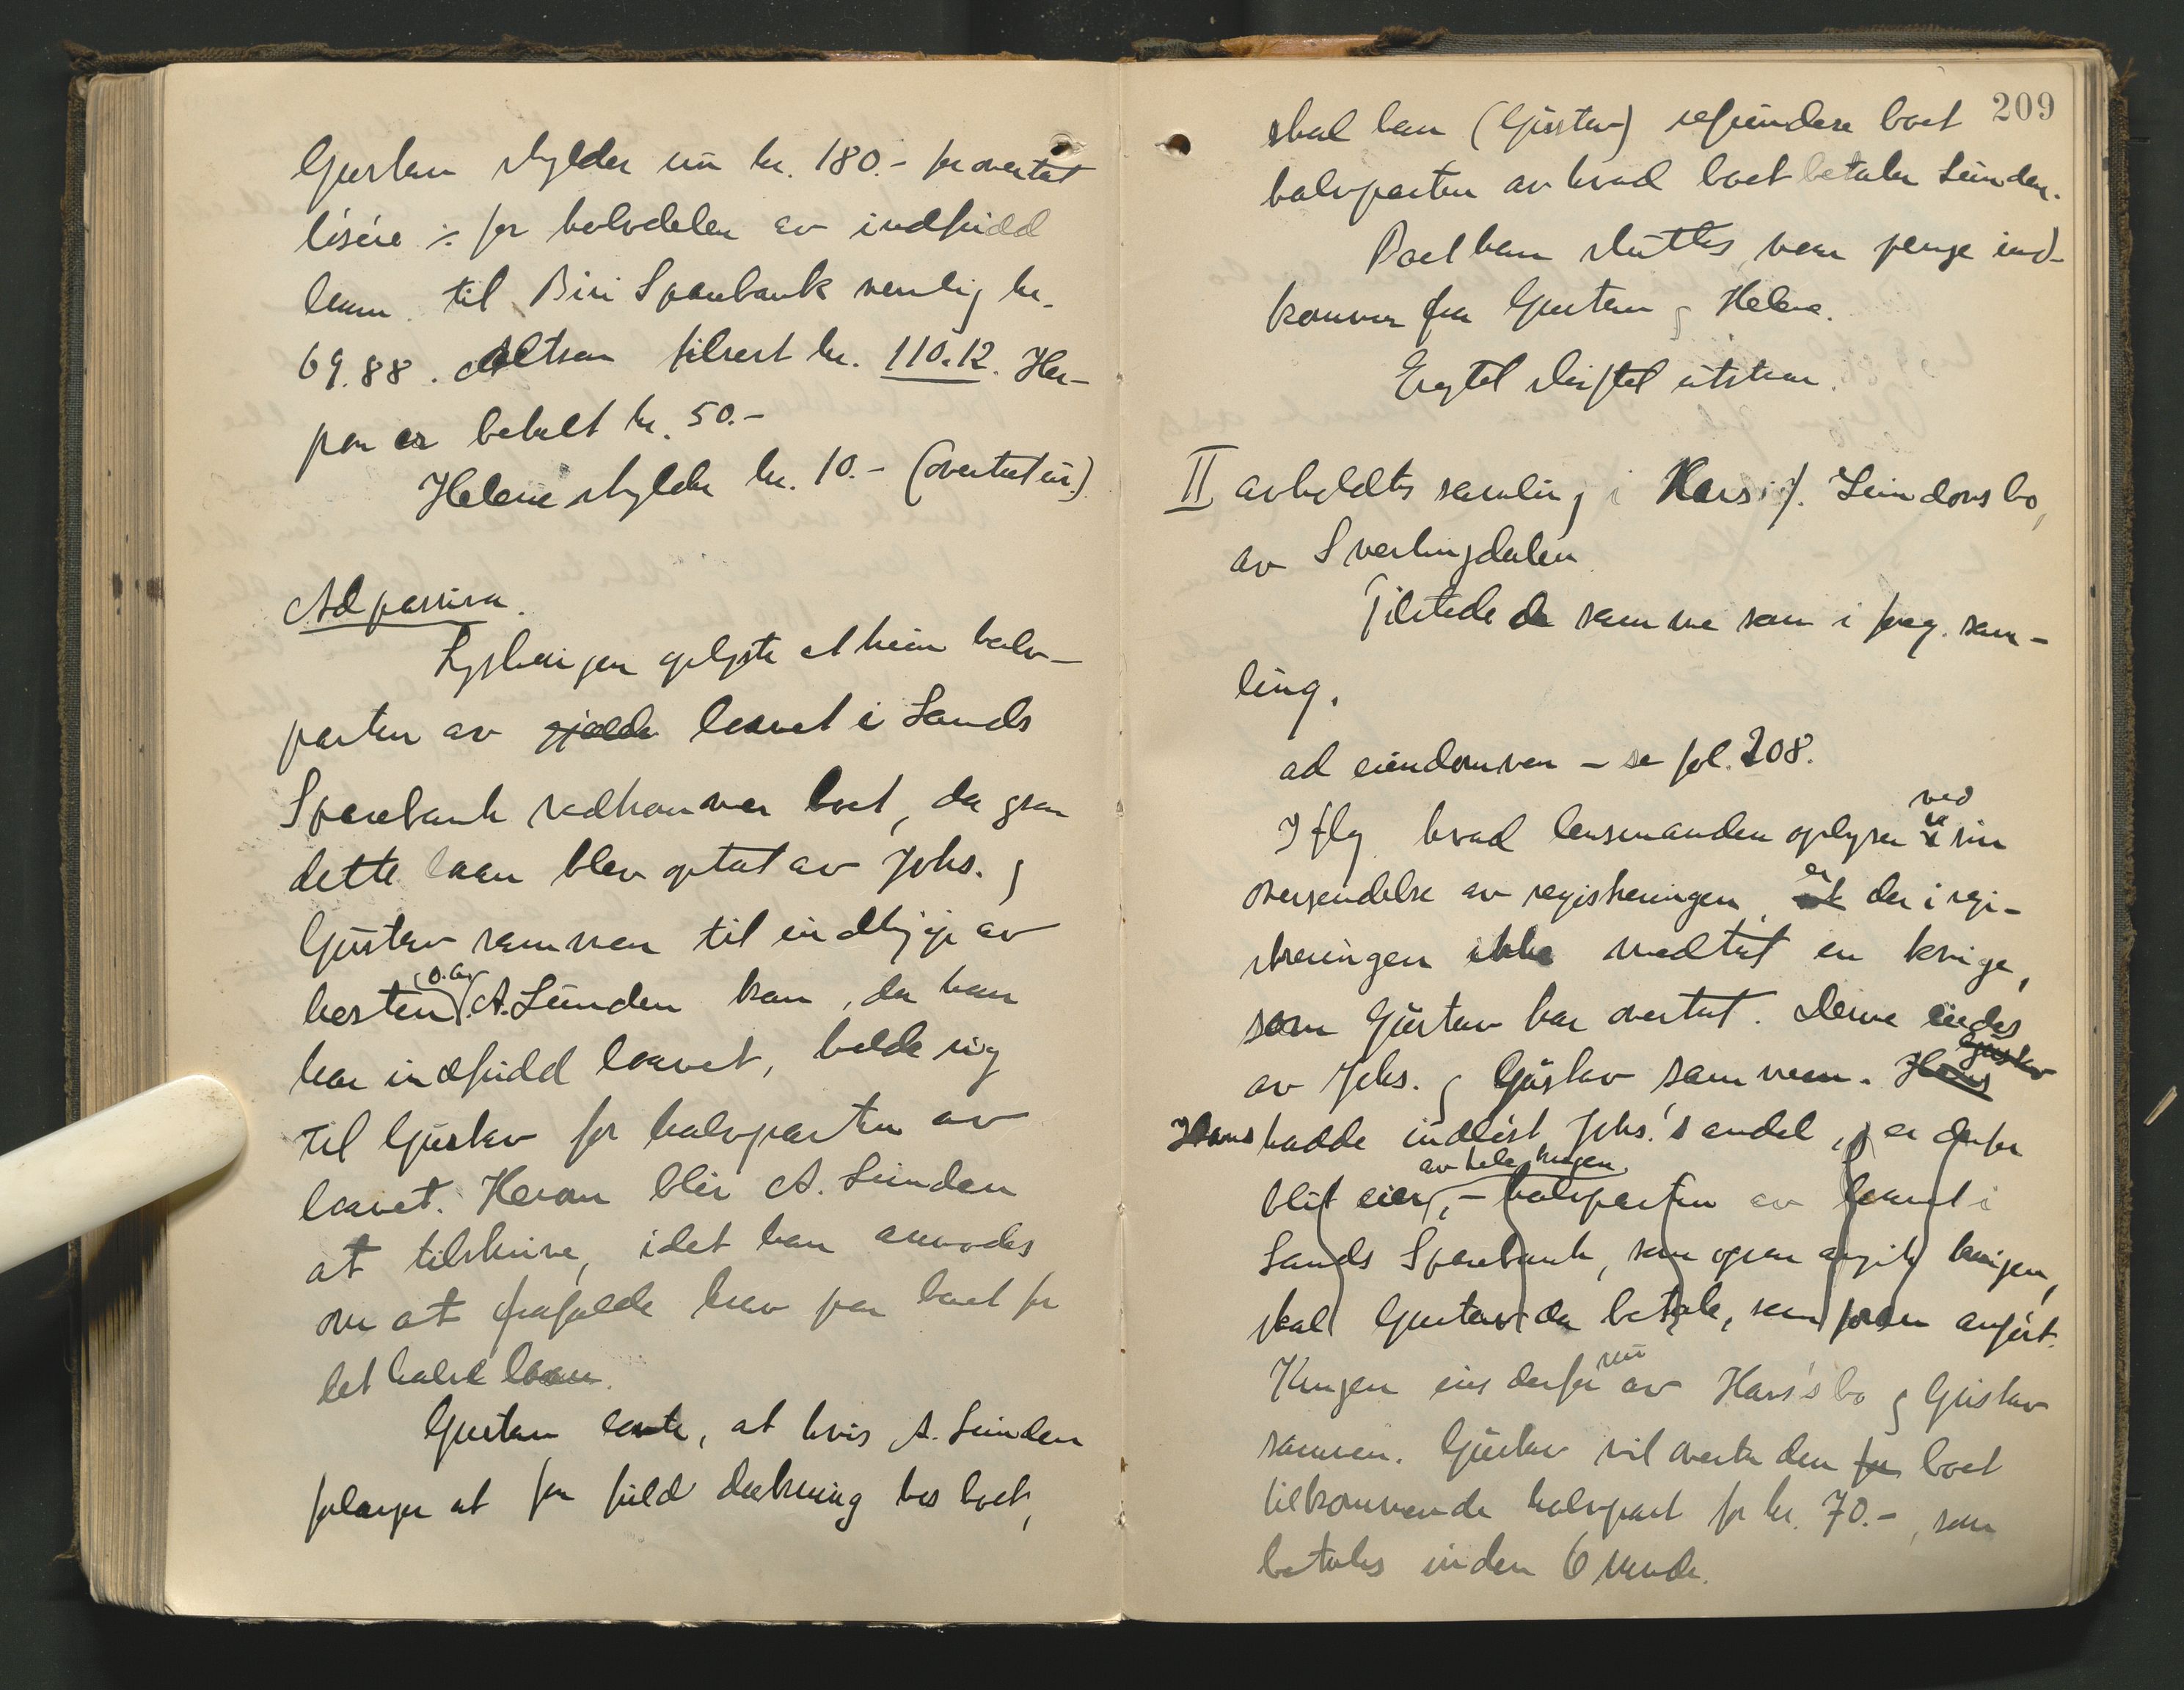 Gustav skylder nu kr. 180.- for overtat
løsøre ÷ for halvdelen av indfridd
laan til Biri Sparebank nemlig kr.
69.88. Altsaa tilrest kr. 110.12. Her-
paa er betalt kr. 50.-
Helene skylder kr. 10.- (overtat ur.)
Ad passiva.
at kun halv-
parten av gjælde laanet i Lands
Sparebank vedkommer boet, da
dette laan blev optat av Johs. og
Gustav sammen til indkjøp av
hesten (o.a.). A. Lunden kan, da han
har indfridd laanet, holde sig
til Gustav for halvparten av
laanet. Herom blir A. Lunden
at tilskrive, idet han anmodes
om at frafalde krav paa boet for
det halve laan.
Gustav lovte, at hvis A. Lunden
forlanger at faa fuld dækning hos boet,
209
skal han (Gustav) refundere boet
halvparten av hvad boet betaler Lunden.
Boet kan sluttes, naar penge ind-
kommer fra Gustav og Helene.
II avholdtes samling i Hans J. Lundens bo,
av Snertingdalen.
Tilstede de samme som i foreg. sam-
ling.
ad eiendommen - se fol. 208.
Iflg. hvad lensmanden oplyser ved sin
oversendelse av registreringen, er der i regi-
streringen ikke medtat en kvige,
som Gustav har overtat. Denne eiedes
av Johs. og Gustav sammen. Hans Gustav
Hans hadde indløst Johs.'s andel, og er derfor
blit eier av hele kvigen, - halvparten av laanet i
Lands Sparebank, som ogsaa angik kvigen,
skal Gustav da betale, som foran anført.
Kvigen eies derfor nu av Hans's bo og Gustav
sammen. Gustav vil overta den for boet
tilkommende halvpart for kr. 70.-, som
betales inden 6 mndr.